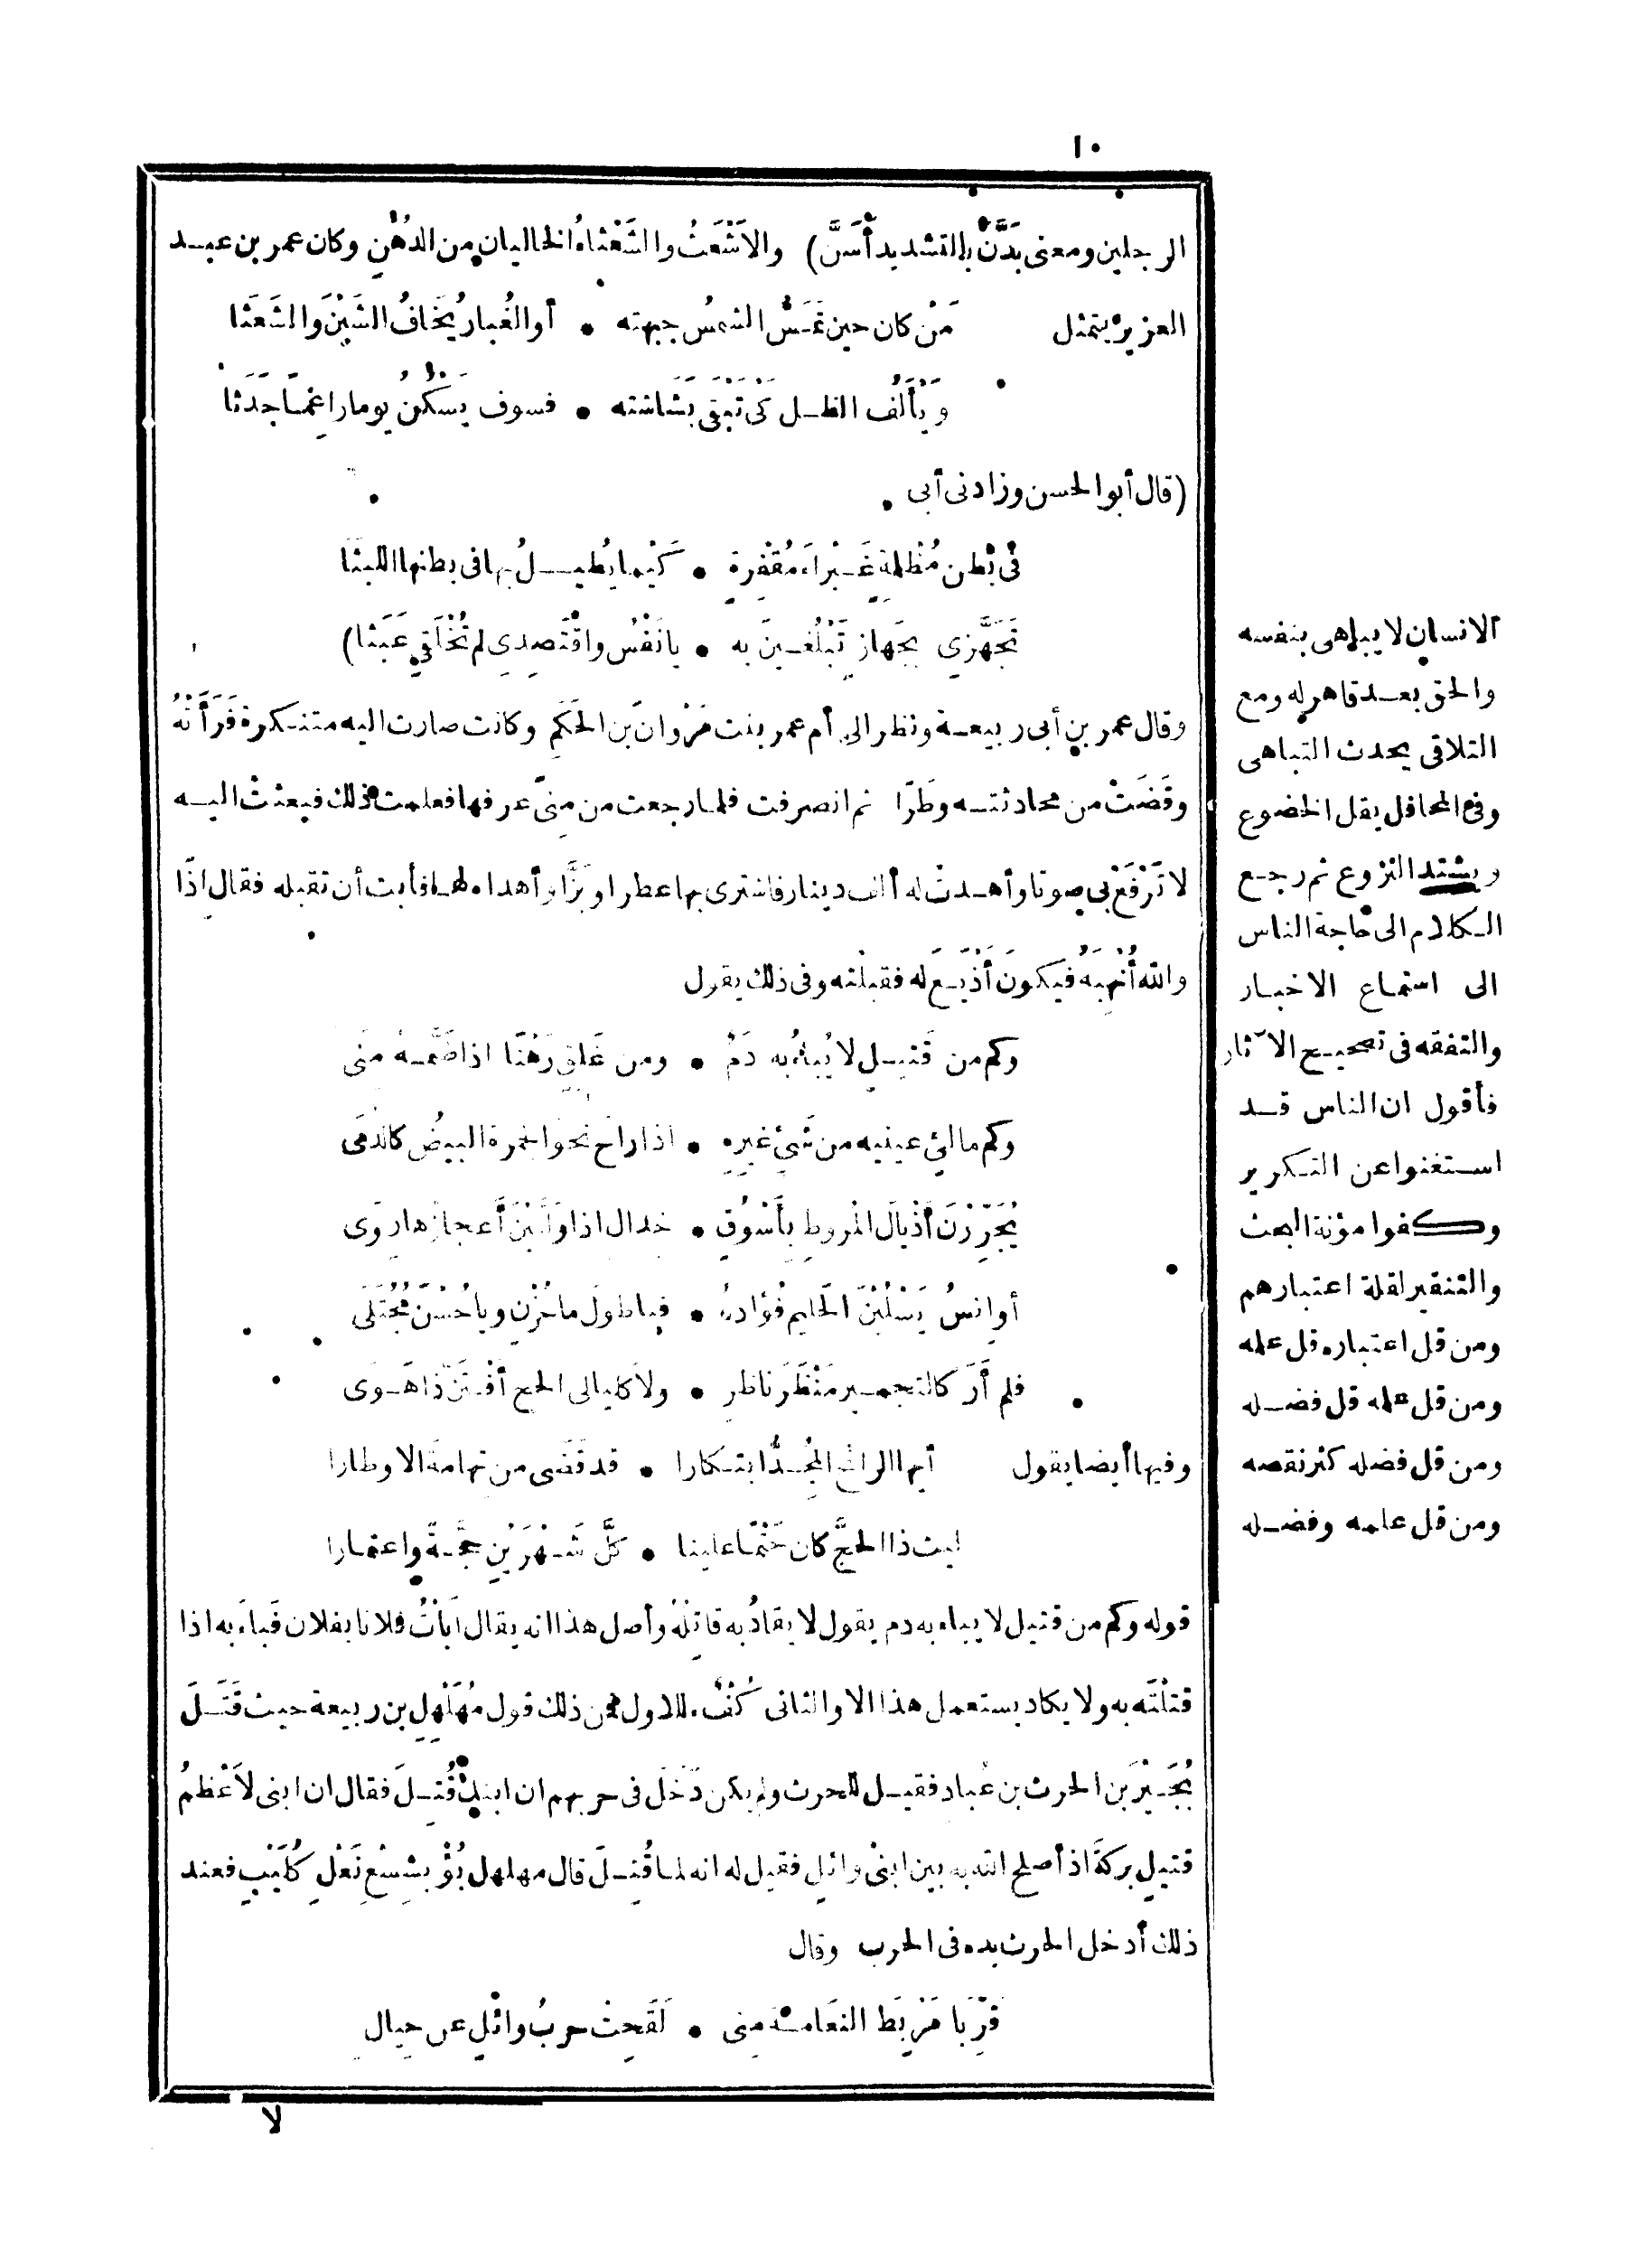 ١٠
الرجلين ومعنى بَدَّنَ بالتشديد أَسَنَّ) والاَشْعَثُ والشَعْثاءُ الخاليان من الدُهْنِ وكان عمر بن عبد
العزيز يتمثل مَنْ كان حين تَمَسُّ الشمسُ جبهته • أو الغُبارُ يَخافُ الشَيْنَ والشَعَثا
ويَأْلَفُ الظل كَىْ تَبْقَى بَشَاشته • فسوف يَسْكُنُ يوما راغمًا جَدَثا
(قال أبو الحسن وزادنى أبى
فى بَطْنِ مُظْلِمةٍ غَبْراءَ مُقْفِرةٍ • كَيْما يُطيلُ بها فى بطنها اللبثا
تَجَهَّزِى بجَهازٍ تَبْلُغينَ به • يا نَفْسُ واقْتَصِدِى لم تُخْلَقِى عَبَثا)
وقال عمر بن أبى ربيعة ونظر الى أم عمر بنت مَرْوانَ بن الحَكَمِ وكانت صارت اليه متنكرة فَرَأَتْهُ
وقَضَتْ من محادثته وطَرًا ثم انصرفت فلما رجعت من مِنىً عرفها فعلمت ذلك فبعثت اليه
لا تَرْفَعْ بى صوتا وأهدتْ له ألف دينار فاشترى بها عطرا وبَزًّا وأهداه لها فأبت أن تقبله فقال اِذًا
والله أُنْهِبَهُ فيكونَ أَذْيَعَ له فقبلته وفى ذلك يقول
وكم من قَتيلٍ لا يُباءُ به دَمٌ • ومن غَلِقٍ رَهْنًا اذا ضَمَّهُ مِنَى
وكم مالئٍ عينيه من شَىْءِ غيرِهِ • اذا راح نحو الجمرة البيضُ كالدُمَى
يُجَرِّرْنَ أَذْيالَ المُروطِ بأَسْوُقٍ • خدال اذا وَلَّيْنَ أَعجازها رِوَى
أوانسُ يَسْلُبْنَ الحَليم فُؤادهُ • فيا طولَ ما حُزْنٍ ويا حُسْنَ مُجْتَلَى
فلم أَرَ كالتجمير مَنْظَرَ ناظرٍ • ولا كليالى الحج أَفْتَنَّ ذا هَوَى
وفيها أيضا يقول أيها الرائح المُجِدُّ ابتكارا • قد قَضَى من تهامةَ الاوطارا
ليت ذا الحَجَّ كان حَتْمًا علينا • كلَّ شَهْرَيْنِ حِجَّةً واعتمارا
قوله وكم من قتيل لا يباء به دم يقول لا يقادُ به قاتِلُهُ وأصل هذا انه يقال أَبَأْتُ فلانا بفلان فَباءَ به اذا
قتلْتَه به ولا يكاد يستعمل هذا الا والثانى كُفْءٌ للاول فمن ذلك قول مُهَلْهِلِ بن ربيعة حيث قَتَلَ
بُجَيْرَ بن الحرث بن عُباد فقيل للحرث ولم يكن دَخَلَ فى حربهم ان ابنكَ قُتِلَ فقال ان ابنى لاَعْظمُ
قتيلٍ بركةً اذ أصلح الله به بين ابنَىْ وائلٍ فقيل له انه لما قُتِلَ قال مهلهل بُؤْ بشِسْعِ نَعْلِ كُلَيْبٍ فعند
ذلك أدخل الحرث يده فى الحرب وقال
قَرِّبَا مَرْبَطَ النَعَامةِ مِنى • لَقِحَتْ حربُ وائلٍ عن حِيالِ
لا
الانسان لا يباهى بنفسه
والحق بعد قاهر له ومع
التلاقى يحدث التباهى
وفى المحافل يقل الخضوع
ويشتد النزوع ثم رجع
الكلام الى حاجة الناس
الى استماع الاخبار
والتفقه فى تصحيح الآثار
فأقول ان الناس قد
استغنوا عن التكرير
وكفوا مؤنة البحث
والتنقير لقلة اعتبارهم
ومن قل اعتباره قل علمه
ومن قل علمه قل فضله
ومن قل فضله كثر نقصه
ومن قل علمه وفضله